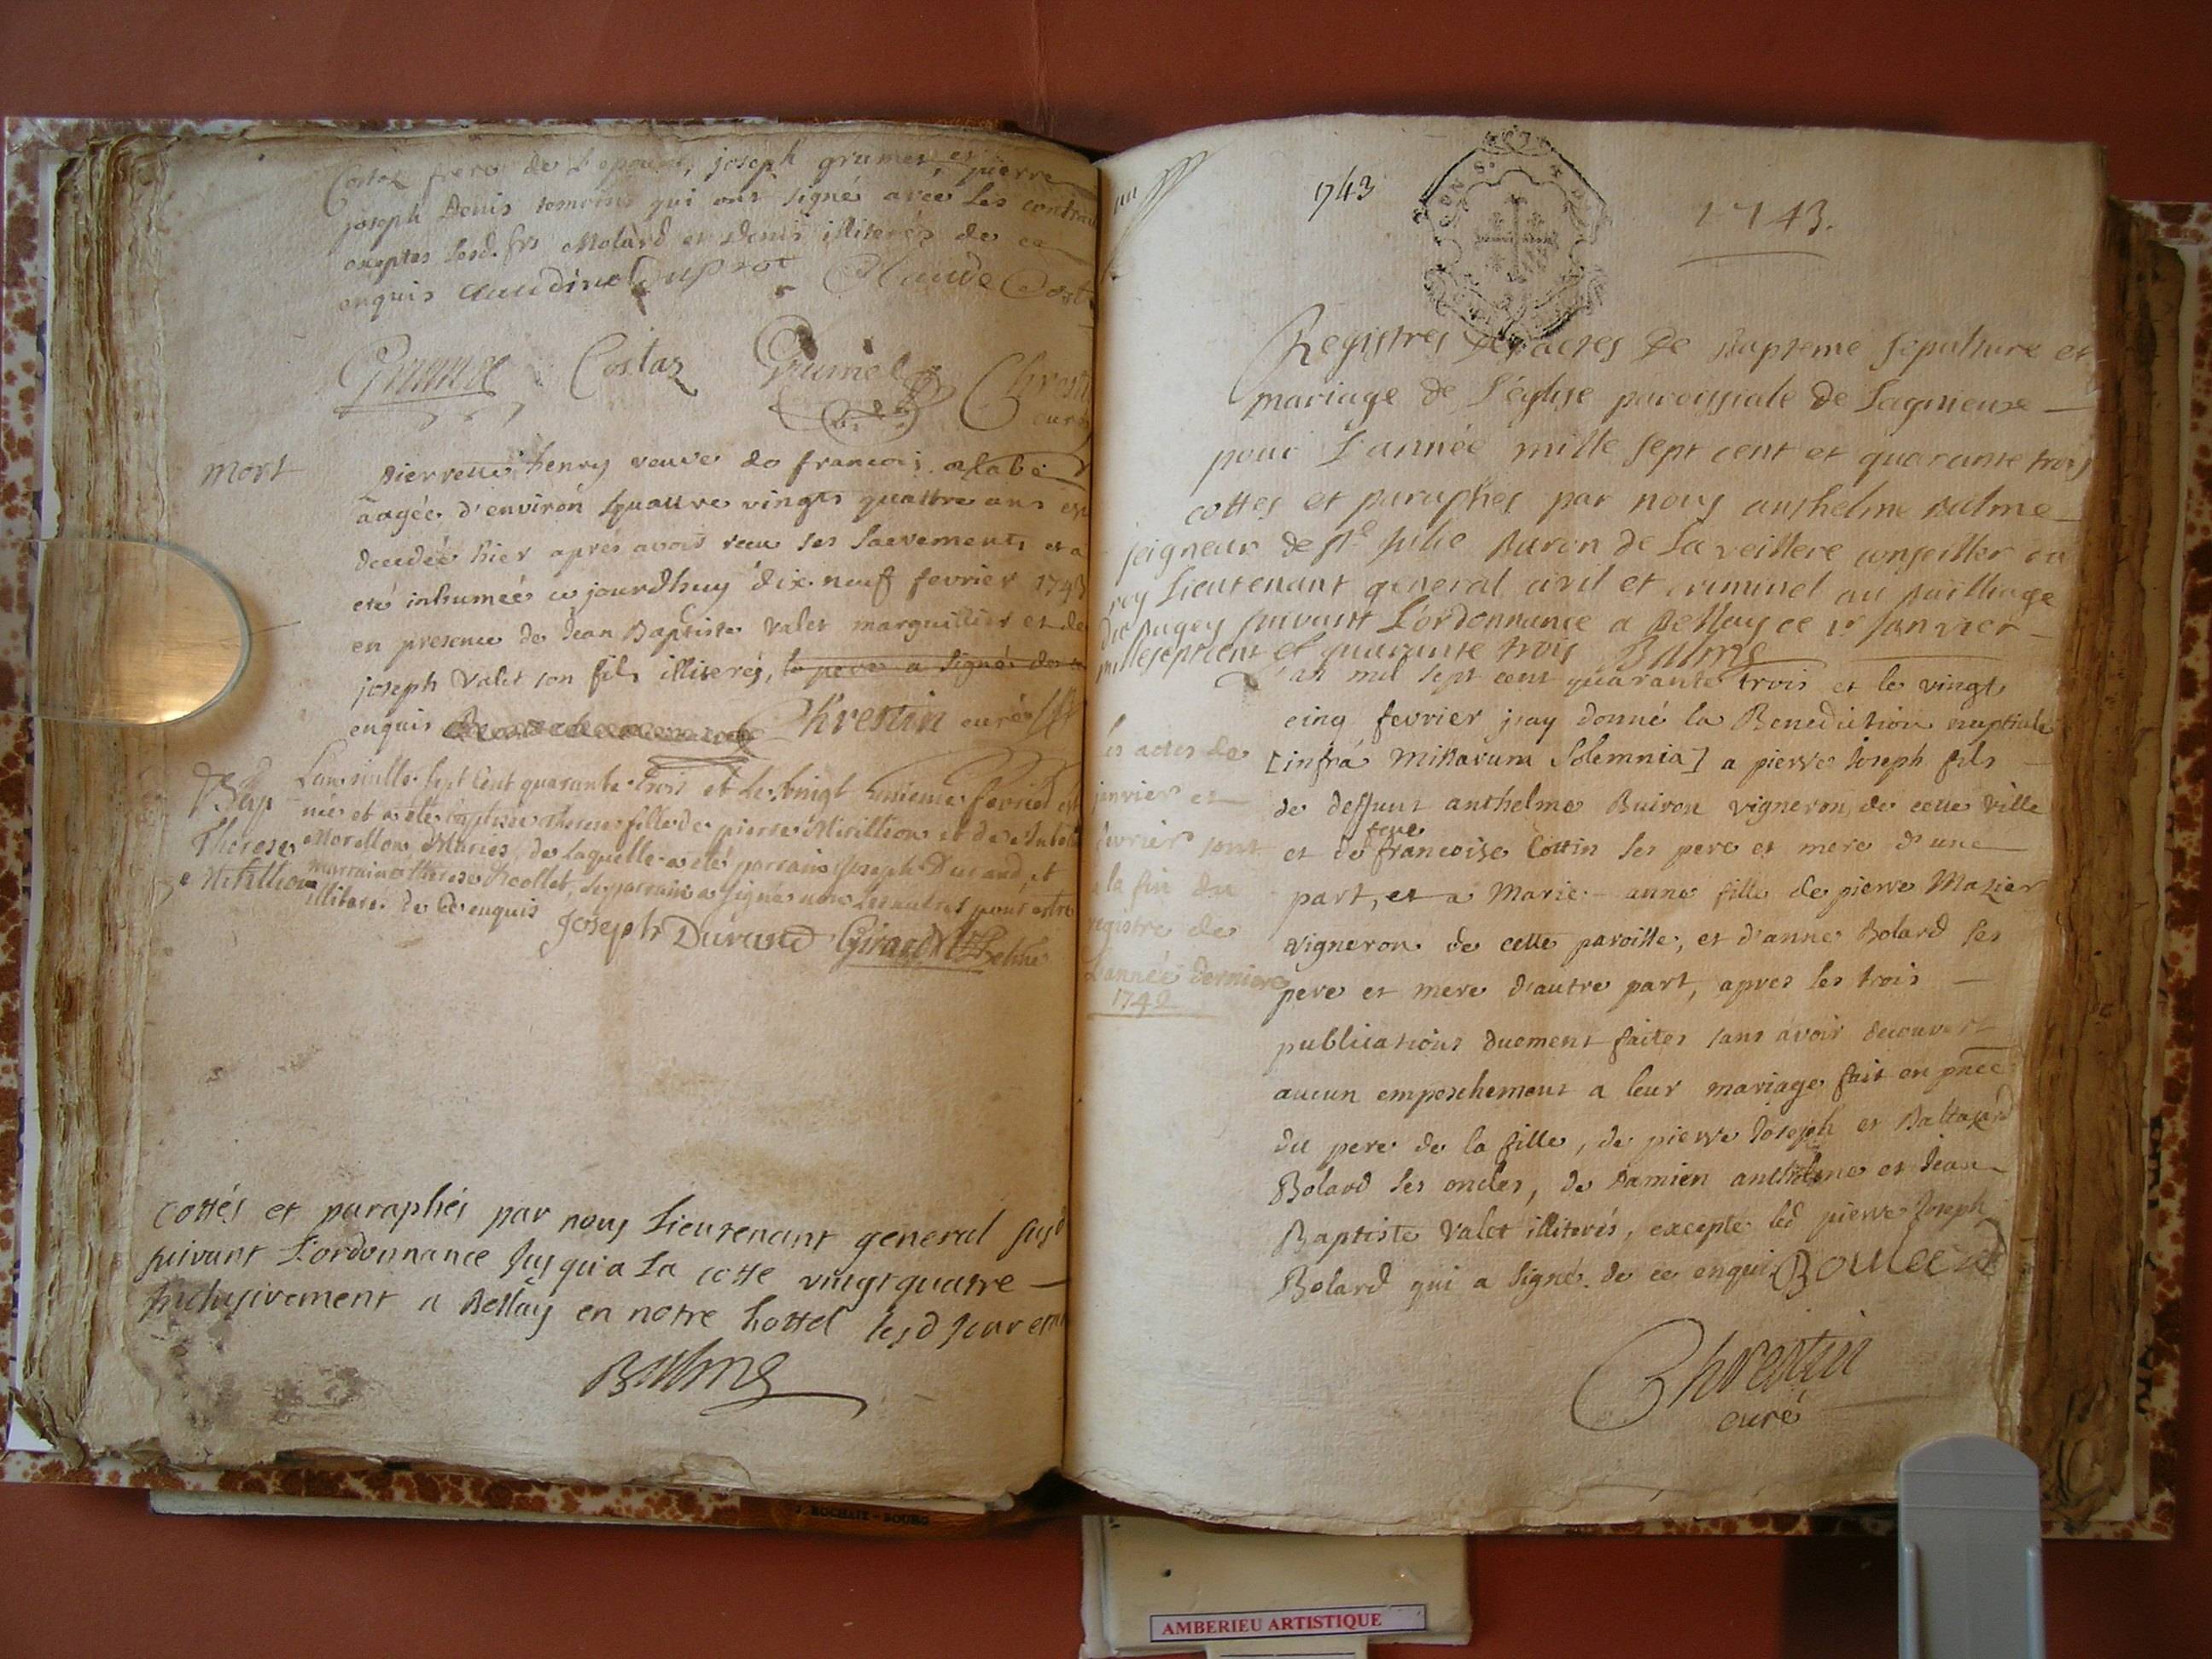 Costaz frere de l'epouse, joseph grumet, et pierre
joseph Denis temoins qui ont signé avec les
exceptes lesd. frs Molard et Denis illiterés de ce
enquis Claude Cost
Costaz Grumet Chrest
curé
mort
pierrette henry veuve de francois
âagée d'environ quattre vingts quattre ans est
decedée hier aprés avoir receu ses sacrements, et a
eté inhumée ce jourdhuy dix neuf fevrier 1743
en presence de Jean Baptiste Valet marguillier et de
joseph Valet son fils illiterés, le pere a signé de ce
enquis Chrestin curé
Bap
Therese
Mitillion
L'an mille sept Cent quarante trois et le vingt unieme fevrier est
née et a eté baptisée therese fille de pierre Mitillion et de
Morellon Mariés, de laquelle a eté parrain Joseph Durand, et
marraine therese Recollet, le parrain a signé non les autres pour estre
illiteré de ce enquis
Joseph Durand Girard
cottés et paraphés par nous Lieutenant general susd
suivant L'ordonnance Jusqu'a La cotte vingt quatre
Inclusivement a Bellay en notre hottel lesd Jour et an
Balme
1743
1743.
Registres des actes de Bapteme sepulture et
mariage de L'eglise paroissiale de Lagnieux
pour L'année mille sept cent et quarante trois
cottes et paraphes par nous anthelme Balme
seigneur de Ste Julie Baron de La veilliere conseiller du
roy Lieutenant general civil et criminel au Bailliage
du Bugey suivant L'ordonnance a Bellay ce 1r Janvier
mille sept cent et quarante trois Balme
L'an mil sept cent quarante trois et le vingt
cinq fevrier j'ay donné la Benediction nuptiale
[infrá Missarum Solemnia] a pierre Joseph fils
de deffunt anthelme Buiron vigneron de cette ville
feue
et de francoise Cottin ses pere et mere d'une
part, et a Marie-anne fille de pierre Mazier
vigneron de cette paroisse, et d'anne Bolard ses
pere et mere d'autre part, apres les trois
publications duement faites sans avoir decouvert
aucun empeschement a leur mariage fait en pnce
du pere de la fille, de pierre Joseph et Baltazard
Bolard ses oncles, de Damien anthelme et Jean
Baptiste Valet illiterés, excepte led pierre Joseph
Bolard qui a signé. de ce enquis Boulard
Chrestin
curé
les actes de
janvier et
fevrier sont
a la fin du
registre de
L'année derniere
1742
AMBERIEU ARTISTIQUE